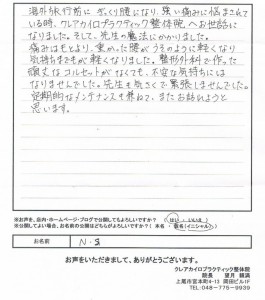 海外旅行前にぎっくり腰になり、強い痛みに悩まされて
いる時、クレアカイロプラクティック整体院へお世話に
なりました。そして、先生の魔法にかかりました。
痛みはもとより、重かった腰がうそのように軽くなり
気持ちまでもが軽くなりました。整形外科で作った
頑丈なコルセットがなくても、不安な気持ちには
なりませんでした。先生も気さくで緊張しませんでした。
定期的なメンテナンスも兼ねて、またお訪ねようと
思います。
※お声を、店内・ホームページ・ブログで公開してもよろしいですか? (はい・いいえ)
※公開してよい場合、お名前の公開はどちらがよろしいですか?(本名・匿名(イニシャル))
お名前 N・S
お声をいただきまして、ありがとうございます。
クレアカイロプラクティック整体院
院長 望月 頼満
上尾市宮本町4-13 岡田ビル1F
TEL:048-775-9939